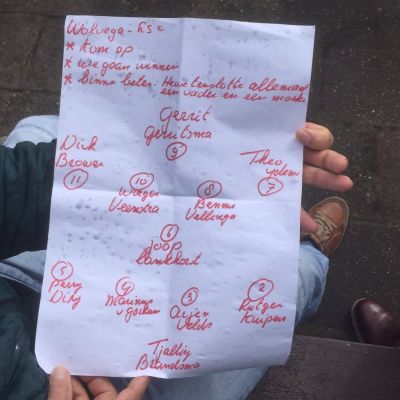 Wolvega - FSC
* Kom op
* we gaan winnen
* Binne beter. Heeve tenslotte allemaal
een vader en een moeder
Gerrit
Gerritsma
9
Dick
Brouwer
11
Theo
7
10
Wieger
Veenstra
8
Benno
Vellinga
6
Joop
Lankhorst
5
Perry
4
Marinus
3
Arjen
Velds
2
Rutger
Kuipers
Tjalling
Brandsma